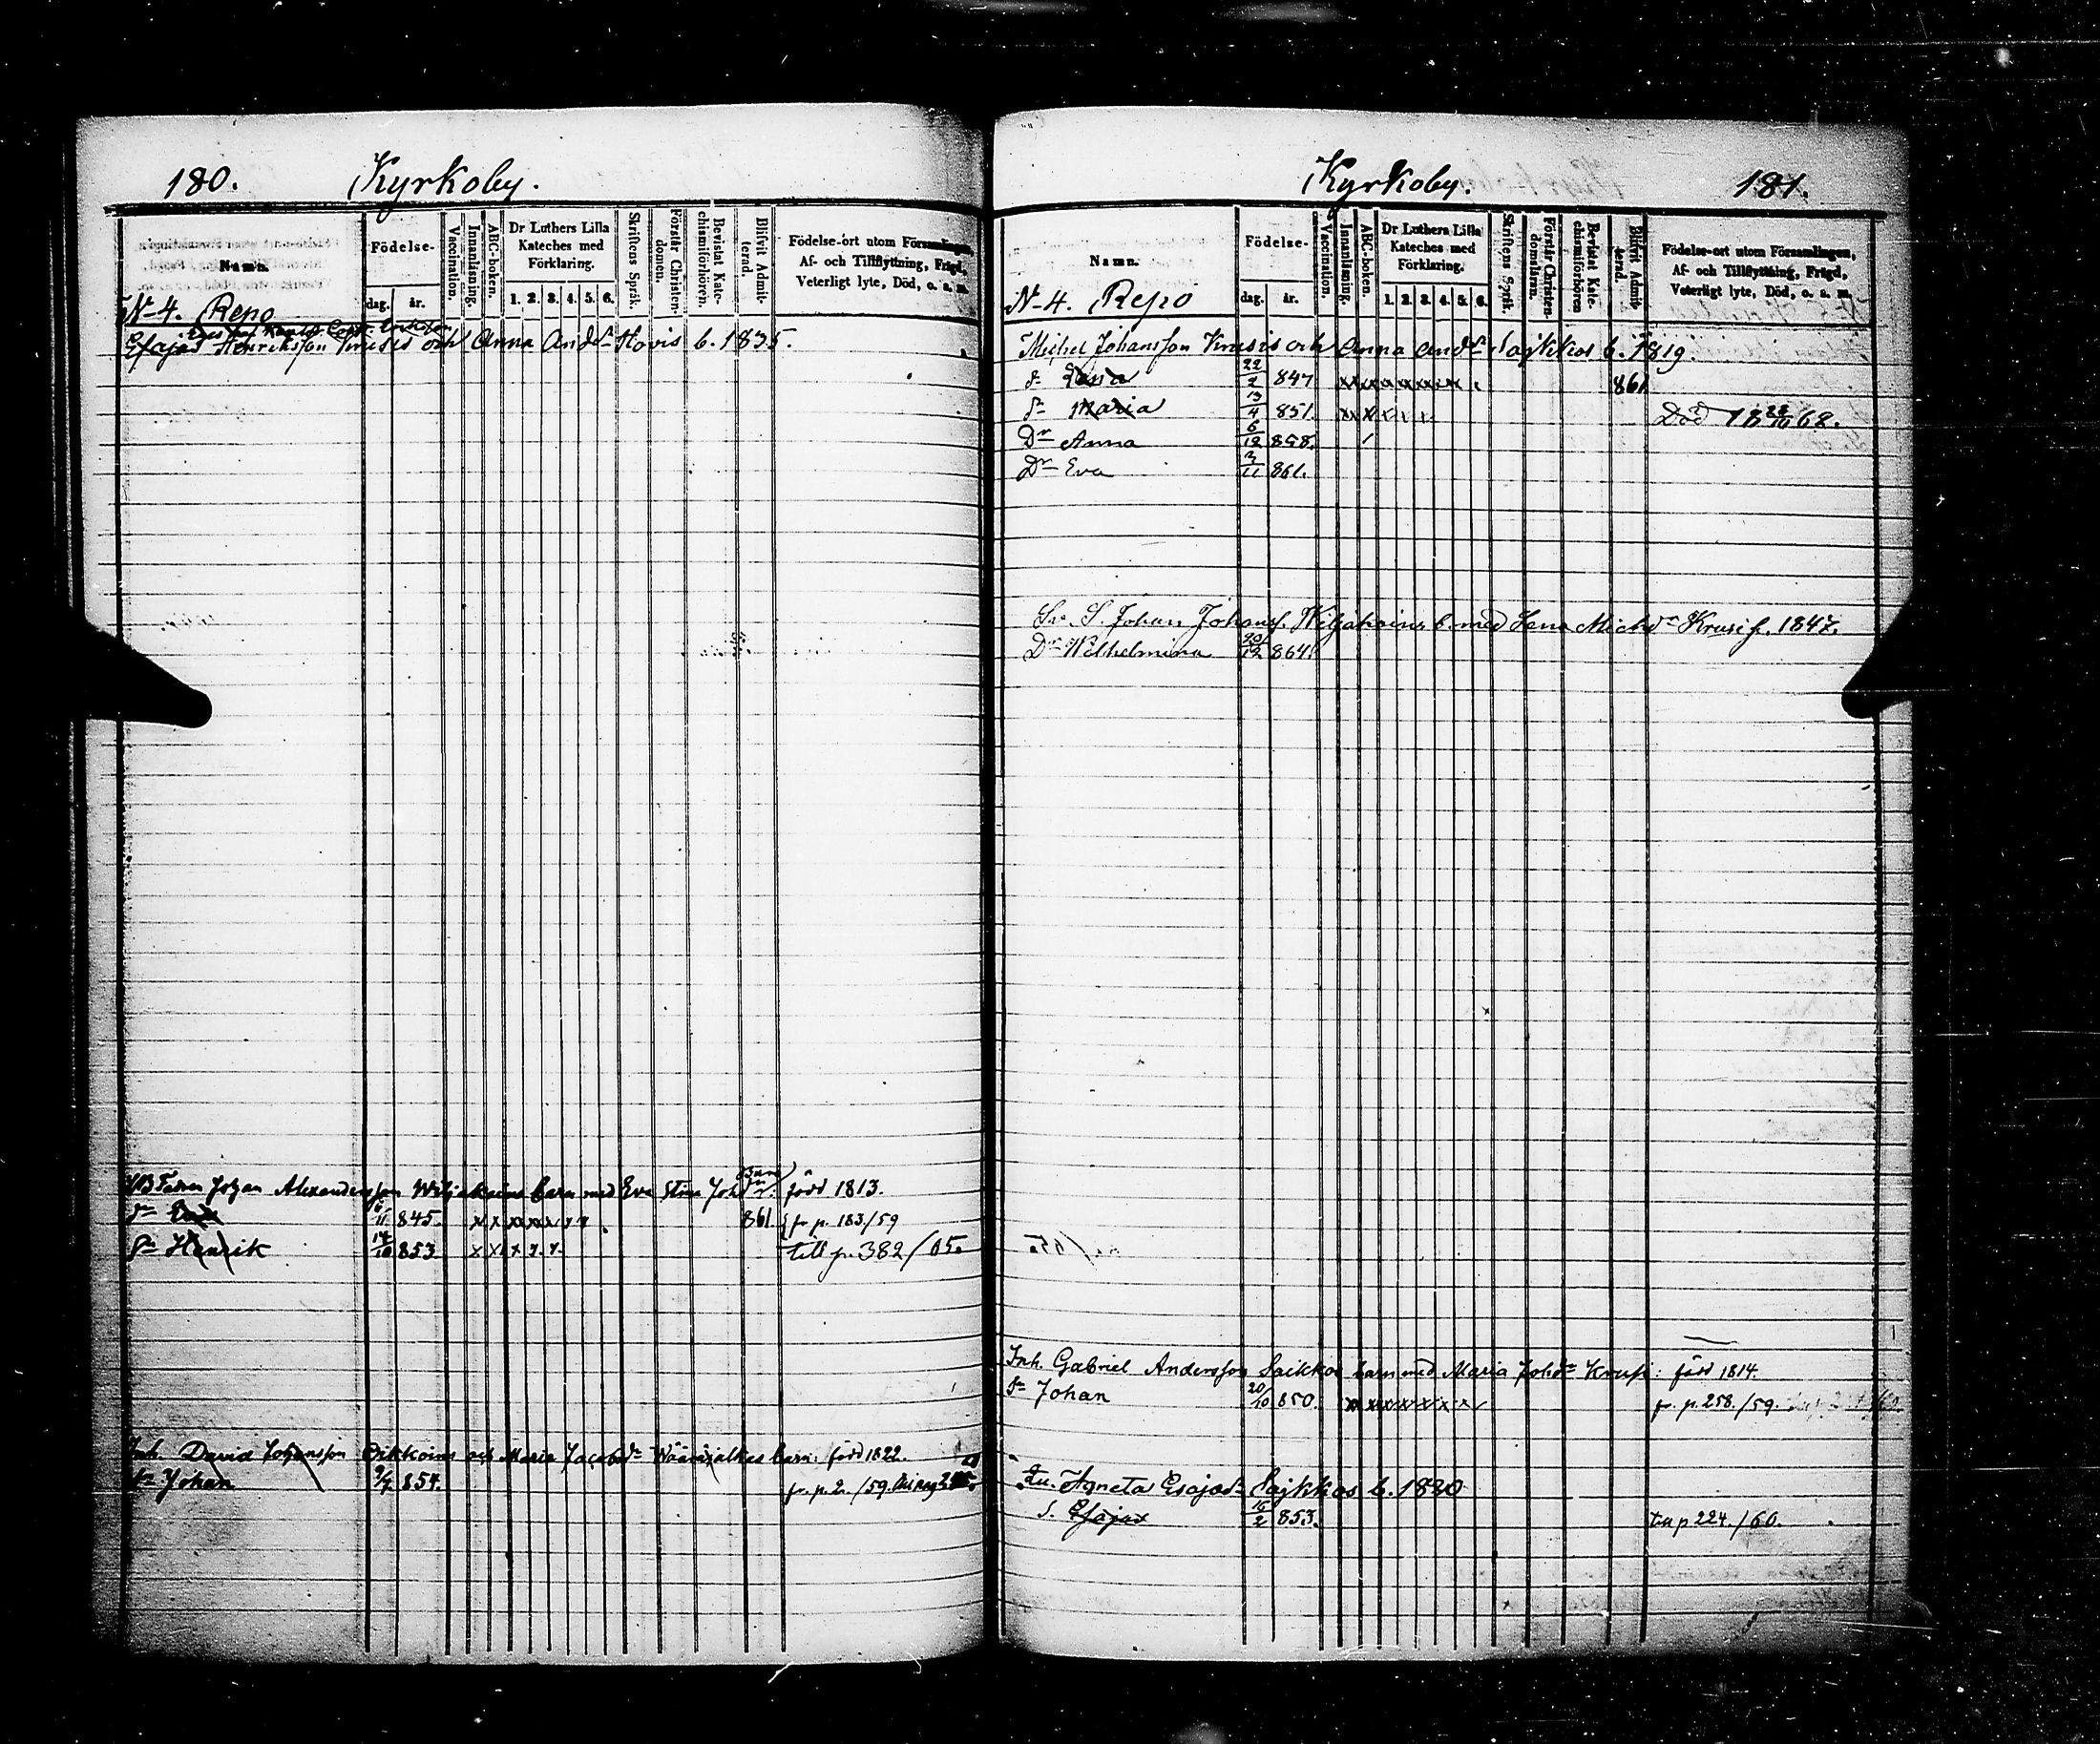 180. Kyrkoby.
Namn.
Födelse-
dag. år.
Vaccination.
Innanläsning.
ABC-boken.
Dr Luthers Lilla Kateches med Förklaring.
1. 2. 3. 4. 5. 6.
Skriftens Språk.
Förstår Christendomen.
Bevistat Katechismiförhören.
Blifvit Admitterad.
Födelse-ort utom Församlingen, Af- och Tillflyttning, Frägd, Veterligt lyte, Död, o. s. m.
N-4. Repo
Esajas Henriksson Krusis och Anna Andsr Hovis b. 1835.
Johan Alexandersson Wiljakains barn med Eva Stina Joh född 1813.
Sn 11 845. x x x x x x x x 861 fr. p. 183./59
Sn Henrik 14/10 853. x x x x x x till p. 382/65.
Inh. David Johansson Oikkoins och Maria Jacobsdr barn: född 1822.
Sn Johan 9/7 854. fr. p. 2./59.
Kyrkoby. 181.
Namn.
Födelse-
dag. år.
Vaccination.
Innanläsning.
ABC-boken.
Dr Luthers Lilla Kateches med Förklaring.
1. 2. 3. 4. 5. 6.
Skriftens Språk.
Förstår Christendomsläran.
Bevistat Katechismiförhören
Blifvit Admitterad.
Födelse-ort utom Församlingen, Af- och Tillflyttning, Frägd, Veterligt lyte, Död, o. s. m.
N-4. Repo
Michel Johansson Krusis och Anna Andsr Sajkkos b. 1819
dr 22/2 847 x x x x x x x x 861
dr Maria 13/4 851. x x x x x x Död 18 28/10 68.
Dr Anna 6/12 858.
Dr Eva 3/11 861.
S. Johan Johanss. Wiljakains b. med Lena Michdr Krusis f. 1847.
Dr Wilhelmina 20/12 864.
Inh. Gabriel Andersson Saikkos barn med Maria Johdr Krusi: född 1814.
Sn Johan 20/10 850. x x x x x x x fr. p. 258./59.
Agneta Esajædr Sajkkos b. 1820
S. Esajas 16/2 853. till p 224./60.